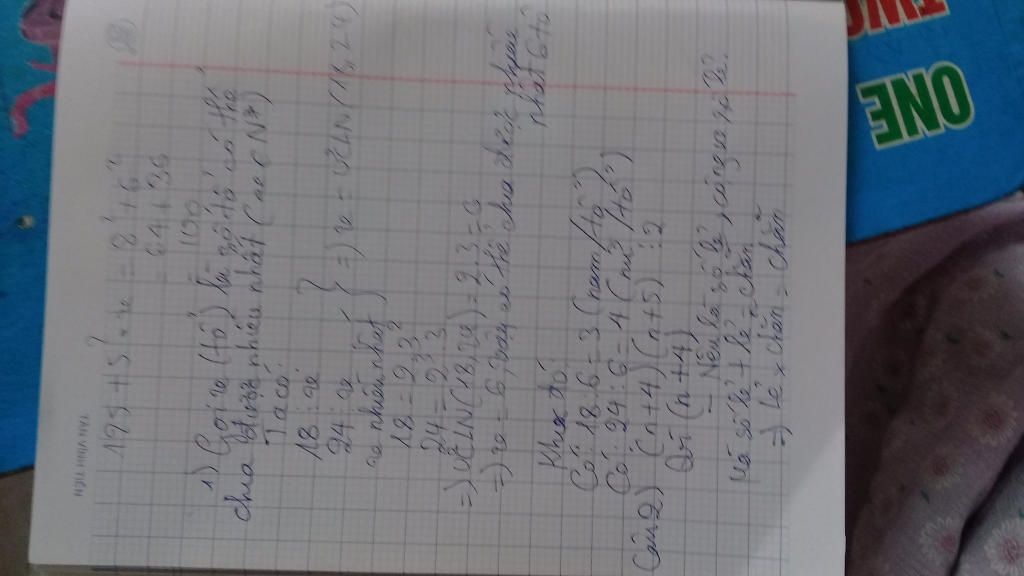 195 + 5² . x = 8² + 6²
= 64 + 36
100
1) Gọi x (tổ) là số tổ có thể
chia nhiều nhất (x ∈ N*)
Ta có
18 : x
24 : x
x nhiều nhất } => x = ƯCLN (18, 24)
18 = 2.3²
24 = 2³.3
=> ƯCLN (18, 24) = 2.3 = 6
=> x = 6, vậy có thể chia được nhiều
nhất 6 tổ
Khi đó
Có: 18 : 6 = 3 (nam/tổ)
Có: 24 : 6 = 4 (nữ/tổ)
Câu 2) (n+4)(n+5) : 2
(n+4)
- Nếu là số lẻ,
Mà số lẻ + lẻ = chẵn
=> lẻ x chẵn = chẵn
TIẾN
ONE
TWO